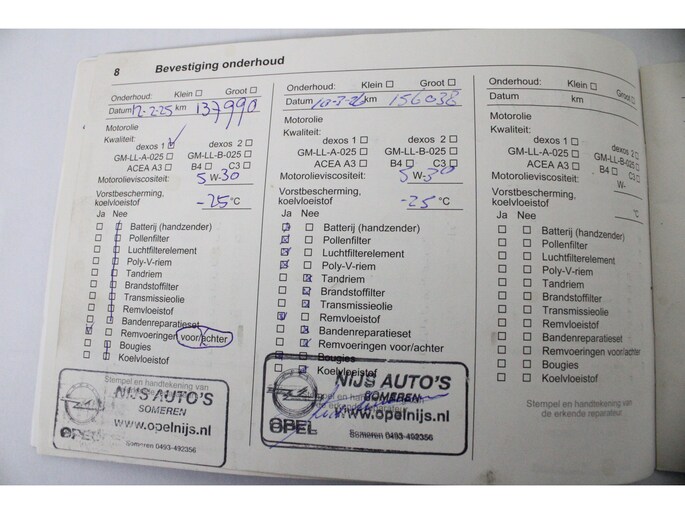 8 Bevestiging onderhoud
Onderhoud: Klein ☐ Groot ☐
Datum 12-2-25 km 137990
Motorolie
Kwaliteit:
dexos 1 ☑ dexos 2 ☐
GM-LL-A-025 ☐ GM-LL-B-025 ☐
ACEA A3 ☐ B4 ☐ C3 ☐
Motorolieviscositeit: 5 W-30
Vorstbescherming,
koelvloeistof -25 °C
Ja Nee
Batterij (handzender)
Pollenfilter
Luchtfilterelement
Poly-V-riem
Tandriem
Brandstoffilter
Transmissieolie
Remvloeistof
Bandenreparatieset
Remvoeringen voor/achter
Bougies
Koelvloeistof
Stempel en handtekening van
NIJS AUTO'S
SOMEREN
www.opelnijs.nl
OPEL
Someren 0493-492356
Onderhoud: Klein ☐ Groot ☐
Datum 10-3-26 km 156038
Motorolie
Kwaliteit:
dexos 1 ☐ dexos 2 ☐
GM-LL-A-025 ☐ GM-LL-B-025 ☐
ACEA A3 ☐ B4 ☐ C3 ☐
Motorolieviscositeit: 5 W-30
Vorstbescherming,
koelvloeistof -25 °C
Ja Nee
Batterij (handzender)
Pollenfilter
Luchtfilterelement
Poly-V-riem
Tandriem
Brandstoffilter
Transmissieolie
Remvloeistof
Bandenreparatieset
Remvoeringen voor/achter
Bougies
Koelvloeistof
NIJS AUTO'S
SOMEREN
www.opelnijs.nl
OPEL
Someren 0493-492356
Onderhoud: Klein ☐ Groot ☐
Datum km
Motorolie
Kwaliteit:
dexos 1 ☐ dexos 2 ☐
GM-LL-A-025 ☐ GM-LL-B-025 ☐
ACEA A3 ☐ B4 ☐ C3 ☐
Motorolieviscositeit: W-
Vorstbescherming,
koelvloeistof °C
Ja Nee
Batterij (handzender)
Pollenfilter
Luchtfilterelement
Poly-V-riem
Tandriem
Brandstoffilter
Transmissieolie
Remvloeistof
Bandenreparatieset
Remvoeringen voor/achter
Bougies
Koelvloeistof
Stempel en handtekening van
de erkende reparateur.